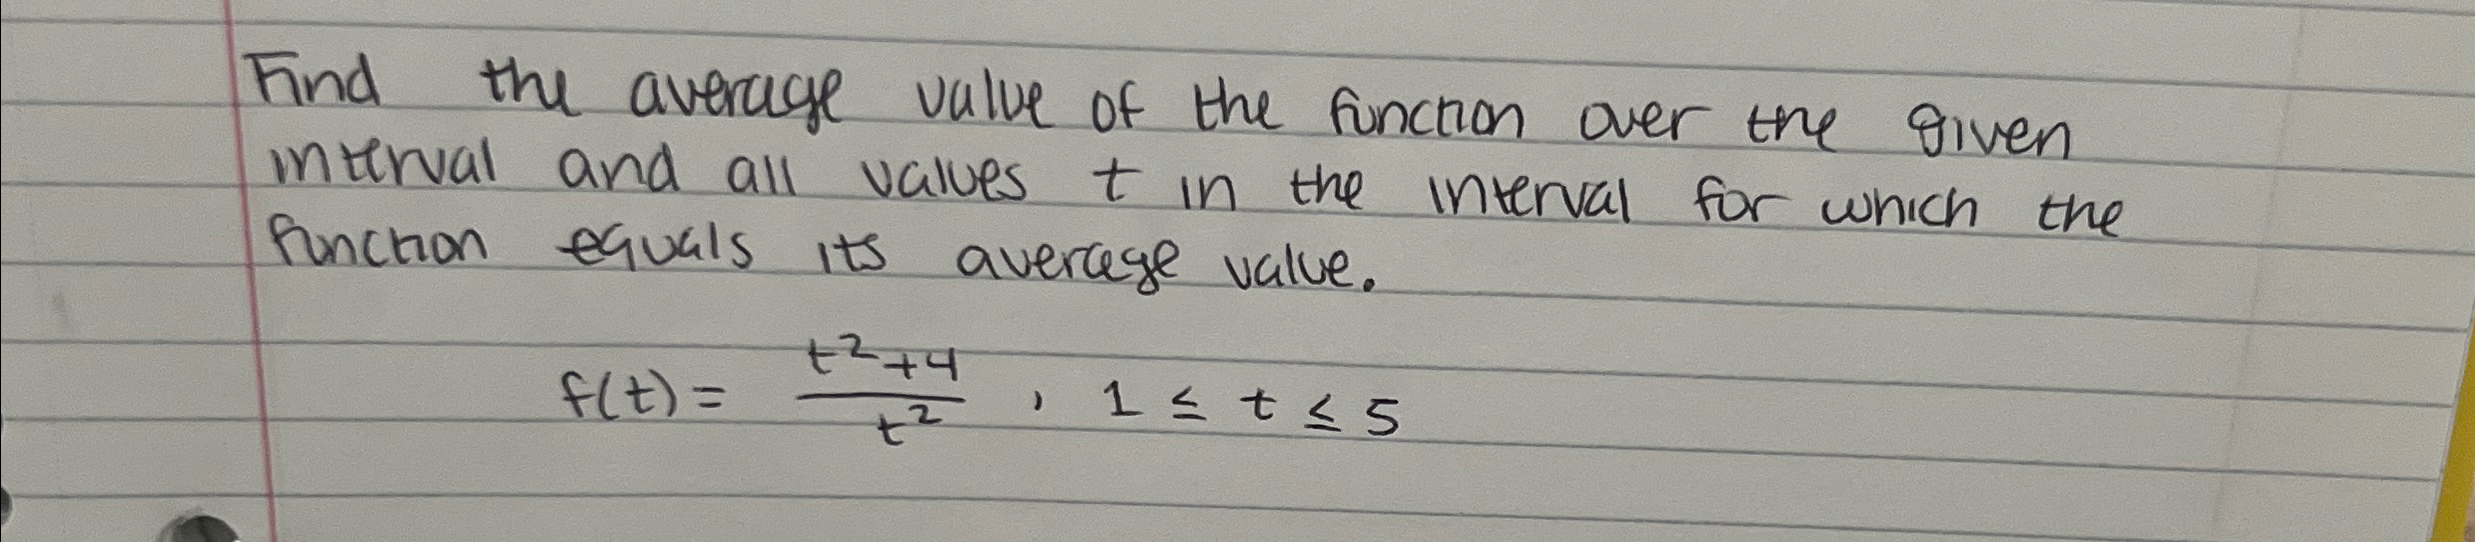 Find the average value of the function over the given
interval and all values t in the interval for which the
function equals its average value.
f(t) = \frac{t^2+4}{t^2} , 1 ≤ t ≤ 5